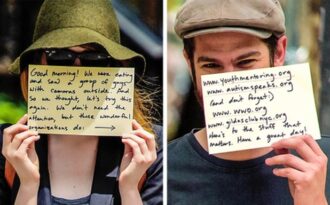 Good morning! We were eating
and saw a group of guys
with cameras outside. And
so we thought, let's try this
again. We don't need the
attention, but these wonderful
organizations do: →
www.youthmentoring.org
www.autismspeaks.org
(and don't forget!)
www.wwo.org
www.gildasclubnyc.org
Here's to the stuff that
matters. Have a great day!